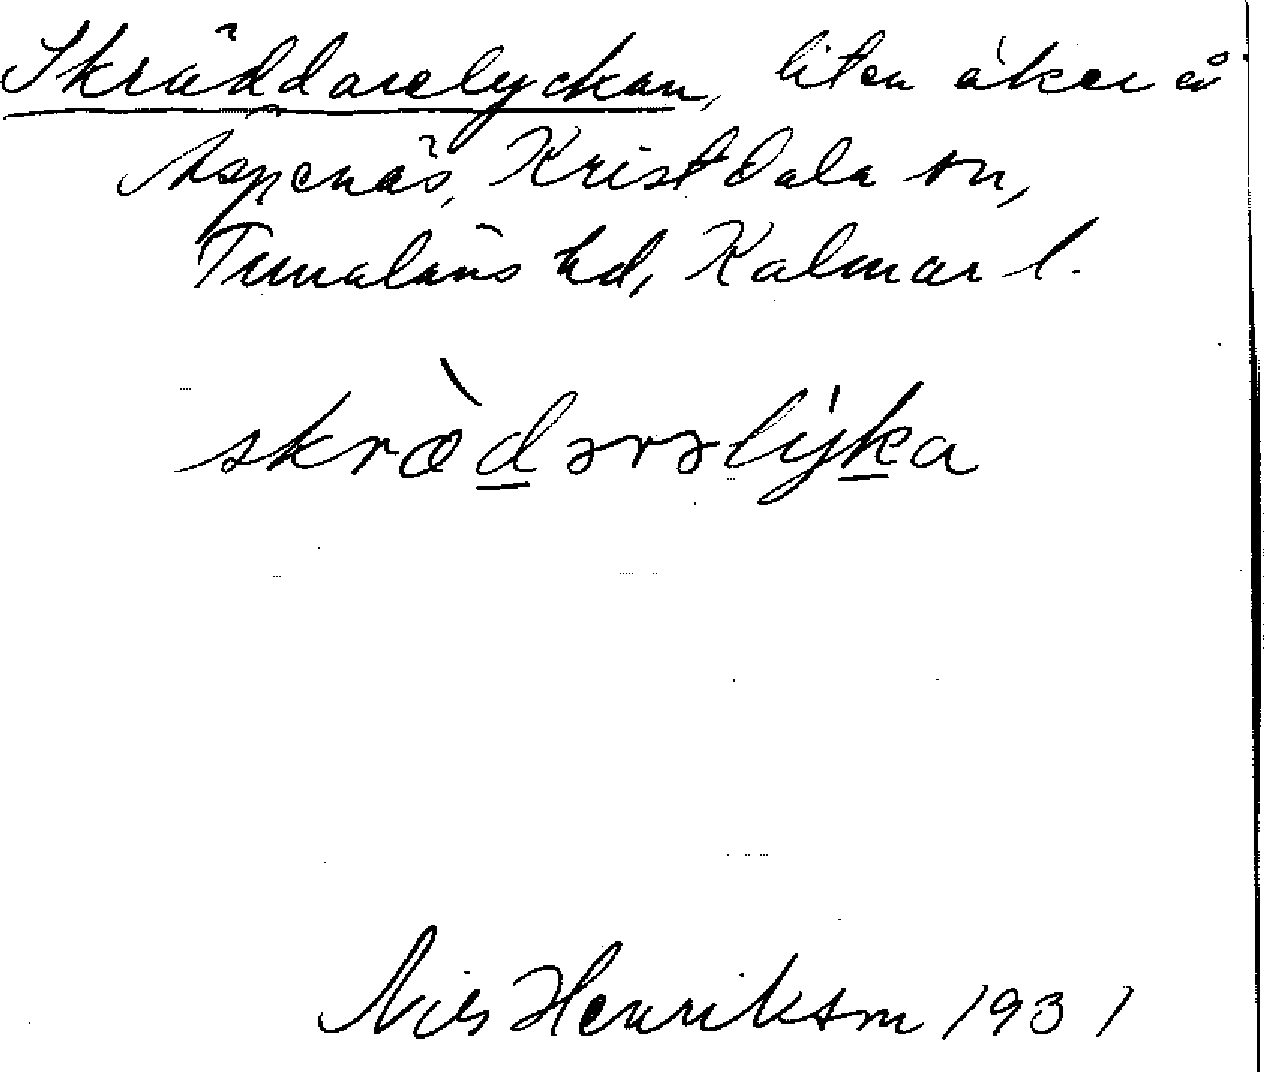 Skräddarelyckan, liten åker å
Aspenäs, Kristdala sn,
Tunaläns hd, Kalmar l.
skræ̀dərəlýka
Nils Henrikson 1931